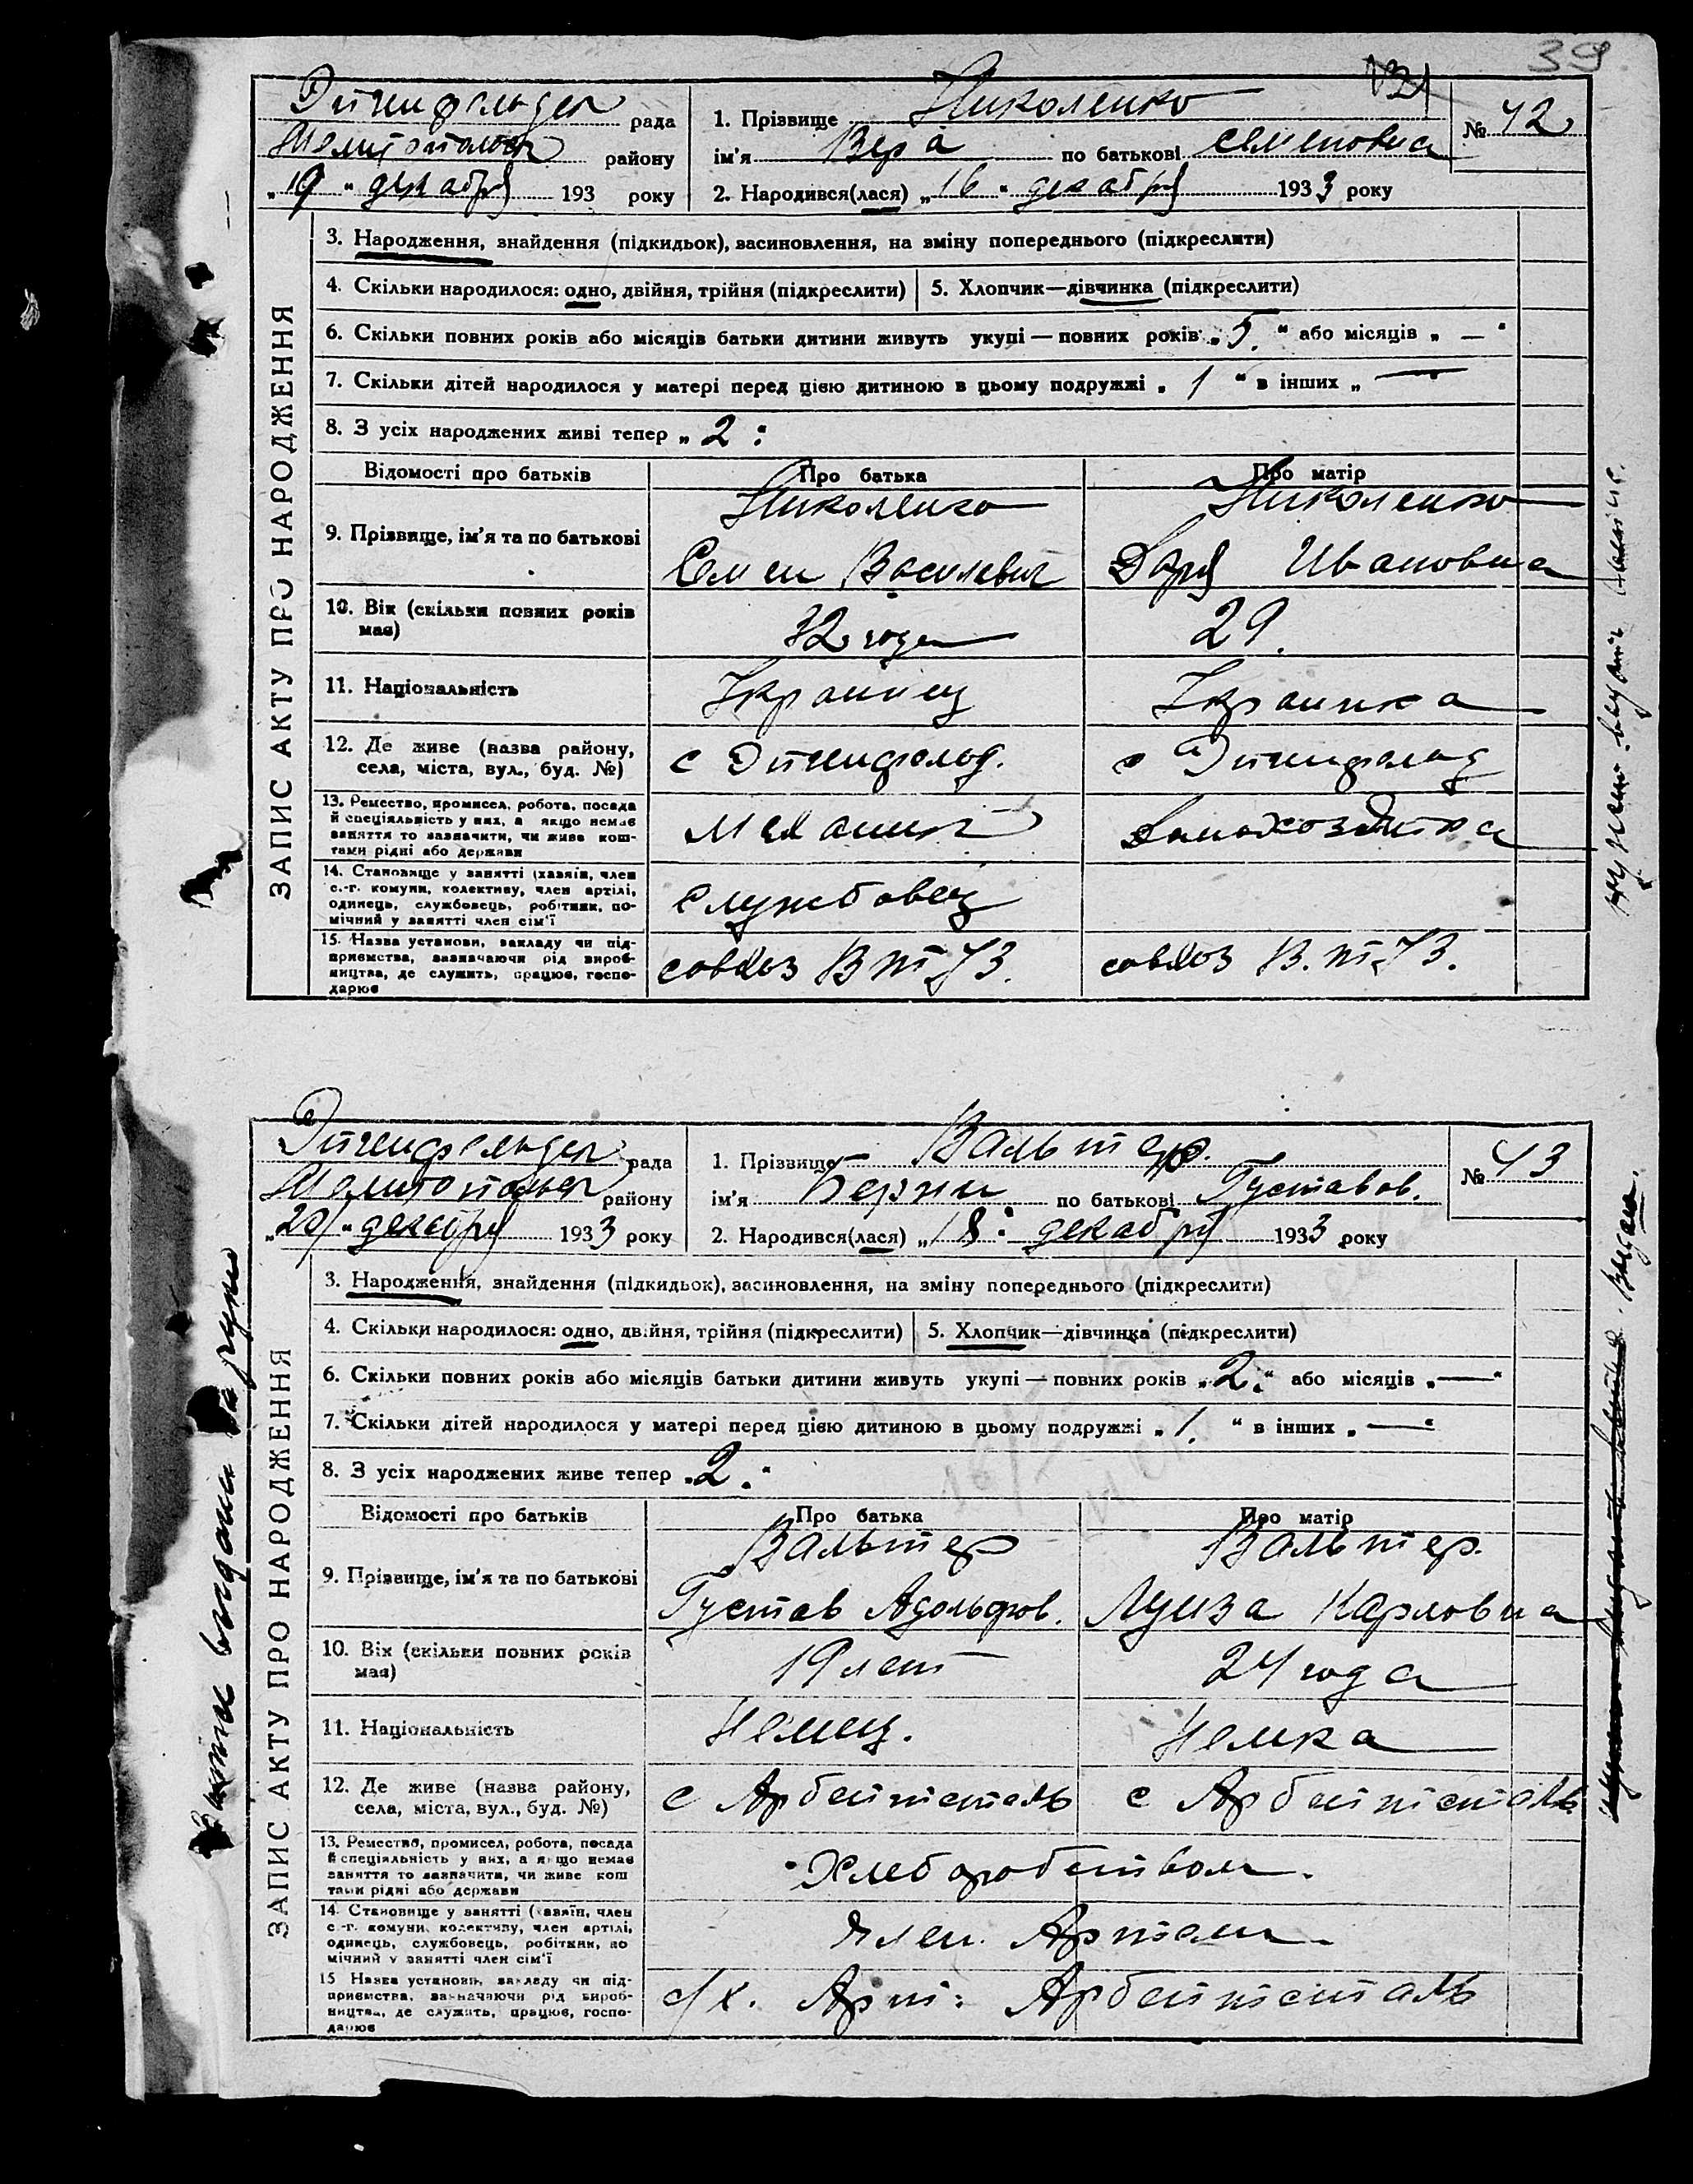 39
131
Эйгенфельдск рада
Мелитопольск району
„19“ декабря 193 року
1. Прізвище Николенко
№ 42
ім'я Вера по батькові Семеновна
2. Народився(лася) „16“ декабря 1933 року
ЗАПИС АКТУ ПРО НАРОДЖЕННЯ
3. Народження, знайдення (підкидьок), засиновлення, на зміну попереднього (підкреслити)
4. Скільки народилося: одно, двійня, трійня (підкреслити) 5. Хлопчик—дівчинка (підкреслити)
6. Скільки повних років або місяців батьки дитини живуть укупі — повних років „5.“ або місяців „—“
7. Скільки дітей народилося у матері перед цією дитиною в цьому подружжі „1“ в інших „—“
8. З усіх народжених живі тепер „2“
Відомості про батьків Про батька Про матір
9. Прізвище, ім'я та по батькові
Николенко
Семен Василевич
Николенко
Дарья Ивановна
10. Вік (скільки повних років має)
32 года
29.
11. Національність
Украинец
Украинка
12. Де живе (назва району,
села, міста, вул., буд. №)
с Эйгенфельд.
с Эйгенфельд
13. Ремество, промисел, робота, посада
й спеціяльність у них, а якщо немає
заняття то зазначити, чи живе кош-
тами рідні або держави
Механик
Домохозяйка
14. Становище у занятті (хазяїн, член
с.-г. комуни, колективу, член артілі,
одинець, службовець, робітник, по-
мічний у занятті член сім'ї
Службовец
15. Назва установи, закладу чи під-
приємства, зазначаючи рід вироб-
ництва, де служить, працює, госпо-
дарює
совхоз
совхоз
Эйгенфельдск рада
Мелитопольск району
„20“ декабря 1933 року
1. Прізвище Вальтер.
№ 43
ім'я по батькові Густавов.
2. Народився(лася) „18“ декабря 1933 року
ЗАПИС АКТУ ПРО НАРОДЖЕННЯ
3. Народження, знайдення (підкидьок), засиновлення, на зміну попереднього (підкреслити)
4. Скільки народилося: одно, двійня, трійня (підкреслити) 5. Хлопчик—дівчинка (підкреслити)
6. Скільки повних років або місяців батьки дитини живуть укупі — повних років „2“ або місяців „—“
7. Скільки дітей народилося у матері перед цією дитиною в цьому подружжі „1.“ в інших „—“
8. З усіх народжених живе тепер „2.“
Відомості про батьків Про батька Про матір
9. Прізвище, ім'я та по батькові
Вальтер
Густав Адольфов.
Вальтер.
Луиза Карловна
10. Вік (скільки повних років має)
19 лет
24 года
11. Національність
Немец.
Немка
12. Де живе (назва району,
села, міста, вул., буд. №)
с Арбейтсталь
с Арбейтсталь
13. Ремество, промисел, робота, посада
й спеціяльність у них, а якщо немає
заняття то зазначити, чи живе кош
тами рідні або держави
Хлеборобством.
14. Становище у занятті (хазяїн, член
с.-г. комуни, колективу, член артілі,
одинець, службовець, робітник, по
мічний у занятті член сім'ї
Член Артели.
15 Назва установи, закладу чи під-
приємства, зазначаючи рід вироб-
ництва, де служить, працює, госпо-
дарює
с/х. Арт. Арбейтсталь
выданы на руки